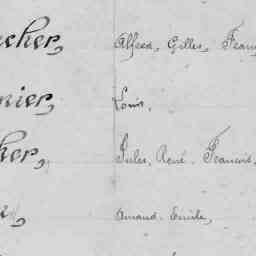 cher, Alfred, Gilles, Fran
nier, Louis,
her, Jules, René, François,
Amand, Emile,